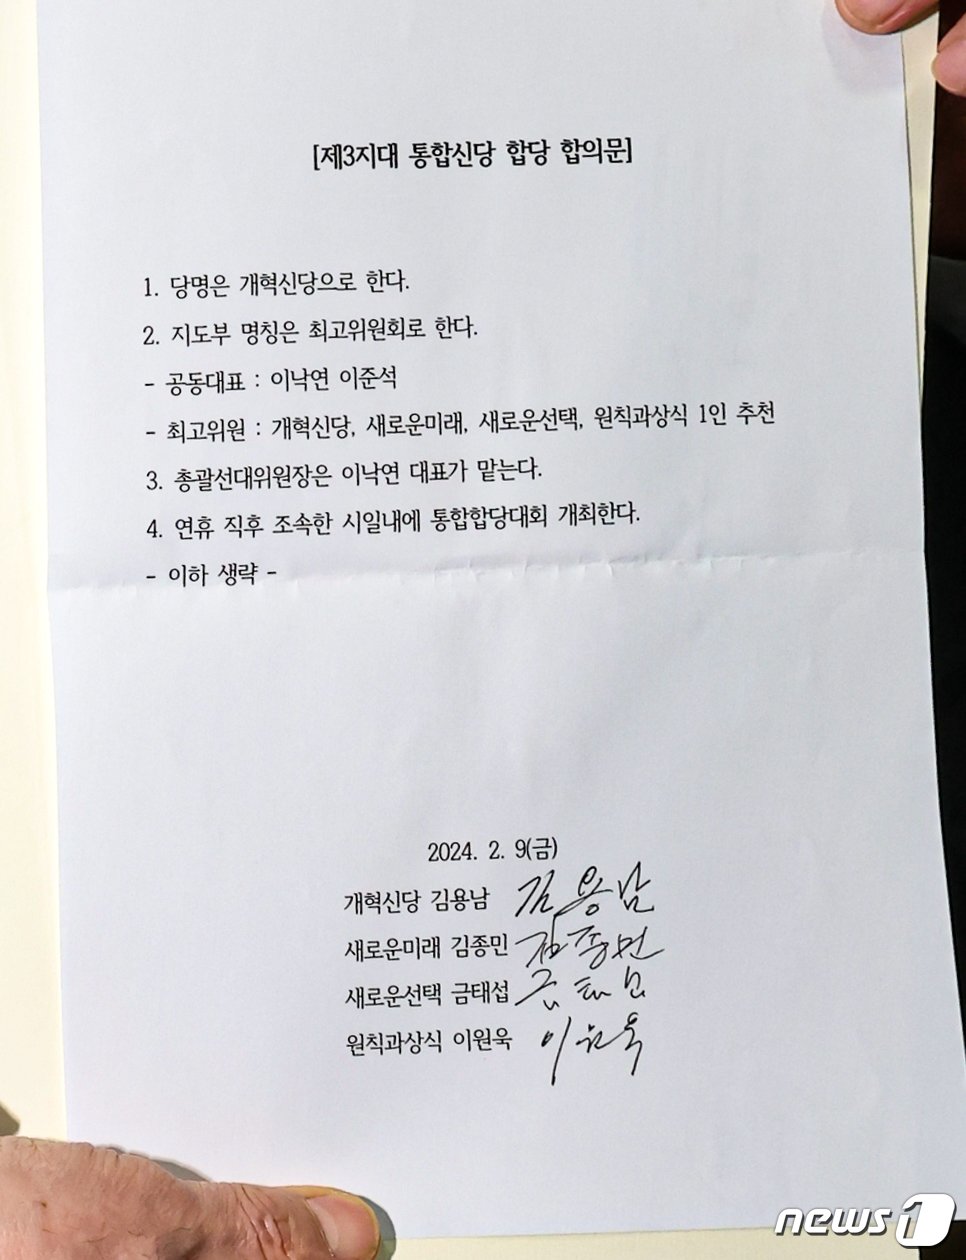 [제3지대 통합신당 합당 합의문]
1. 당명은 개혁신당으로 한다.
2. 지도부 명칭은 최고위원회로 한다.
- 공동대표 : 이낙연 이준석
- 최고위원 : 개혁신당, 새로운미래, 새로운선택, 원칙과상식 1인 추천
3. 총괄선대위원장은 이낙연 대표가 맡는다.
4. 연휴 직후 조속한 시일내에 통합합당대회 개최한다.
- 이하 생략 -
2024. 2. 9(금)
개혁신당 김용남 김용남
새로운미래 김종민 김종민
새로운선택 금태섭 금태섭
원칙과상식 이원욱 이원욱
news1